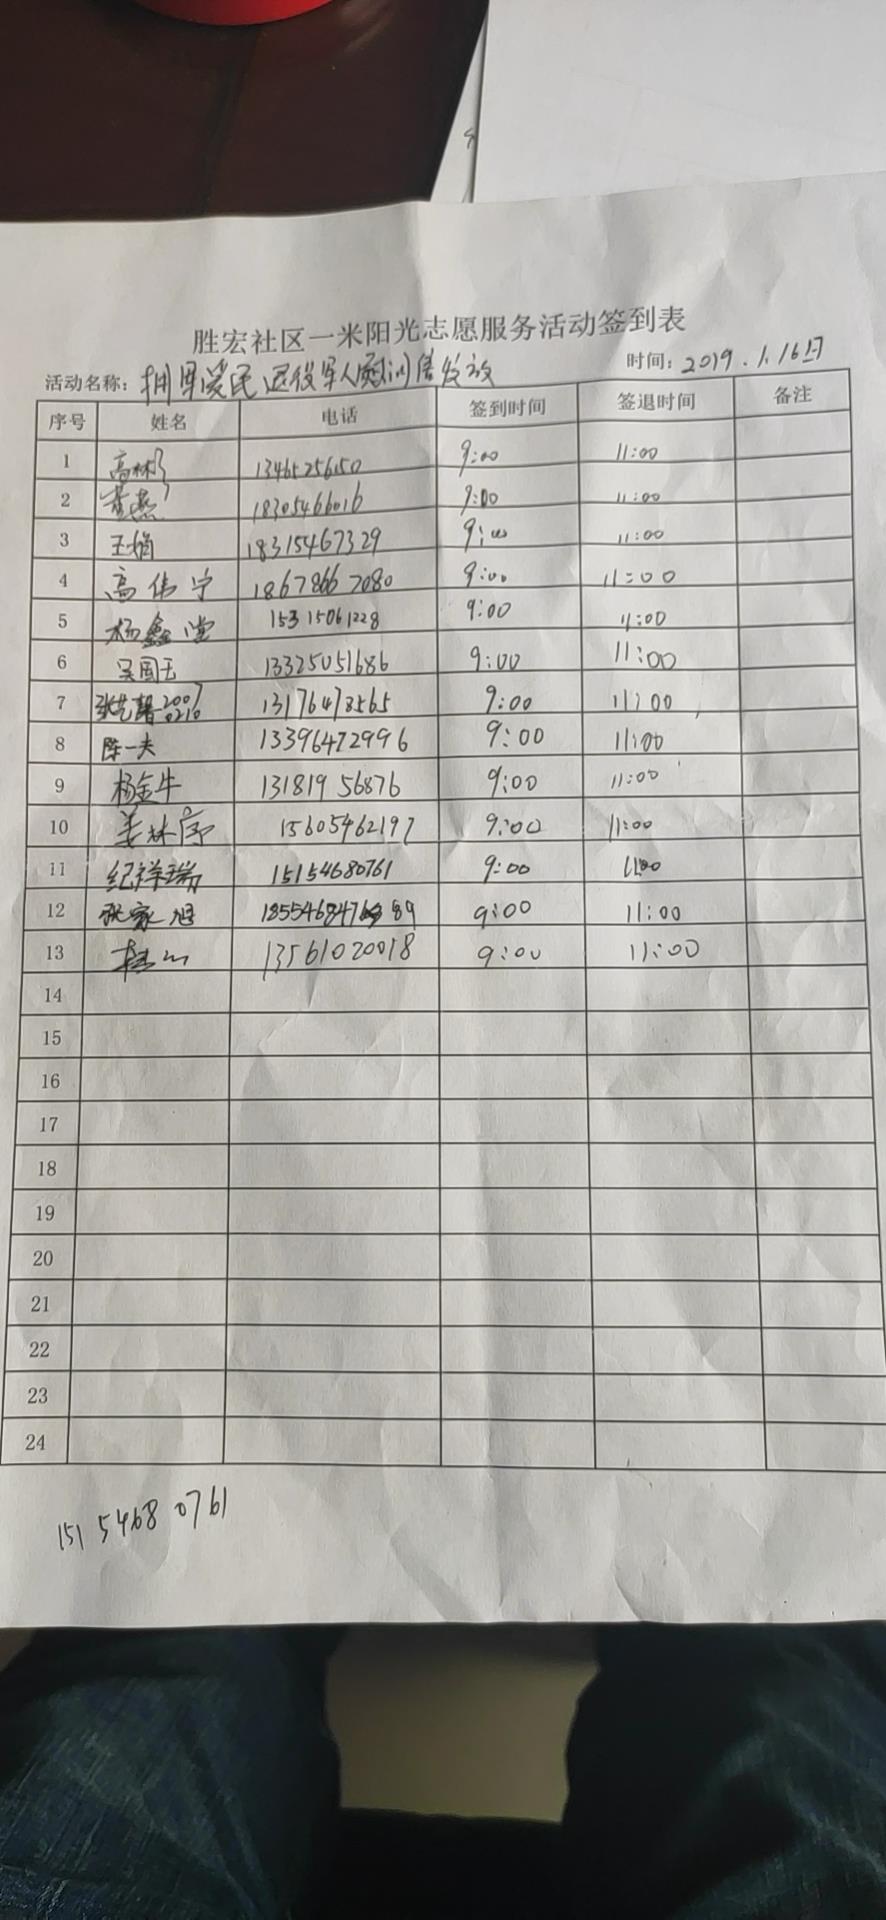 胜宏社区一米阳光志愿服务活动签到表
活动名称: 拥军爱民退役军人慰问信发放 时间: 2019.1.16日
序号 姓名 电话 签到时间 签退时间 备注
1 高林 13465256150 9:00 11:00
2 董燕 18305466016 9:00 11:00
3 王娟 18315467329 9:00 11:00
4 高伟宁 18678667080 9:00 11:00
5 杨鑫堂 15315061228 9:00 11:00
6 吴国玉 13325051686 9:00 11:00
7 张艺馨 20070210 13176478565 9:00 11:00
8 陈一夫 13396472996 9:00 11:00
9 杨金牛 13181956876 9:00 11:00
10 姜林序 15605462197 9:00 11:00
11 纪祥瑞 15154680761 9:00 11:00
12 张家旭 9:00 11:00
13 13561020018 9:00 11:00
14
15
16
17
18
19
20
21
22
23
24
151 5468 0761